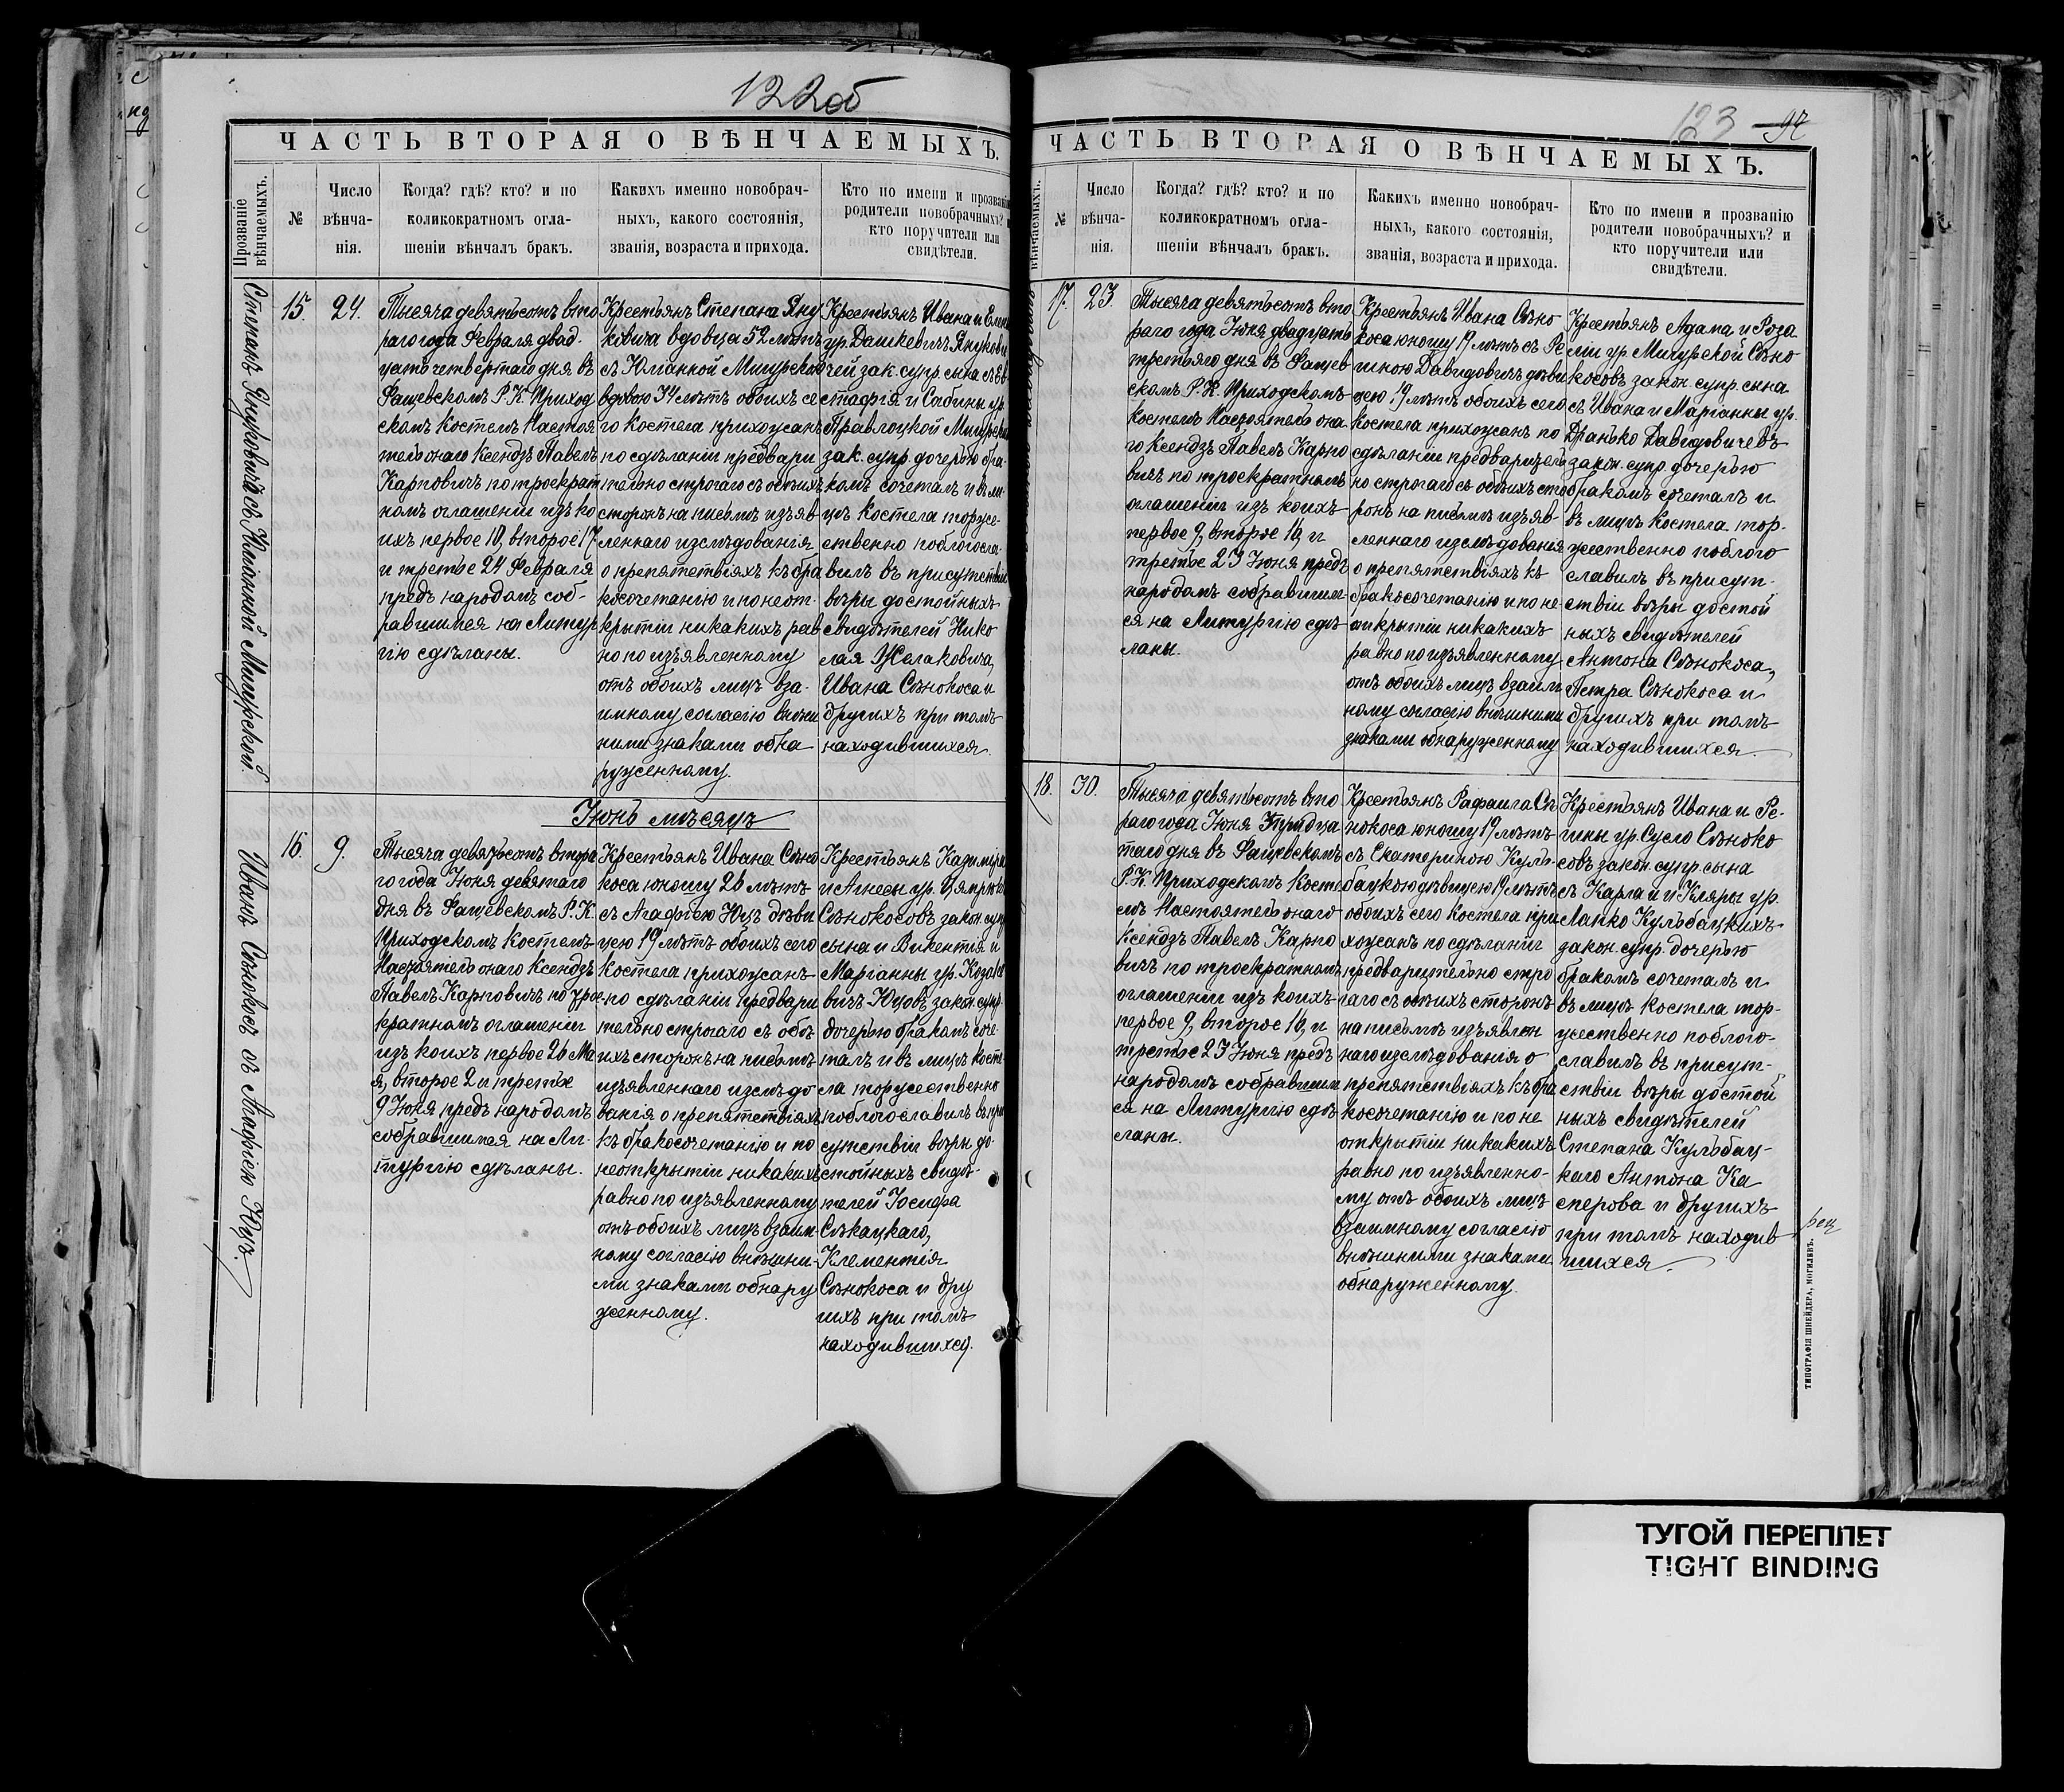 122об
ЧАСТЬ ВТОРАЯ О ВѢНЧАЕМЫХЪ.
Прозваніе
вѣнчаемыхъ.
№
Число
вѣнча-
нія.
Когда? гдѣ? кто? и по
коликократномъ огла-
шеніи вѣнчалъ бракъ.
Какихъ именно новобрач-
ныхъ, какого состоянія,
званія, возраста и прихода.
Кто по имени и прозванію
родители новобрачныхъ? и
кто поручители или
свидѣтели.
Степанъ Януковичъ съ Юліанной Мигурской.
15.
24.
Тысяча девятьсотъ вто
раго года Февраля двад-
цать четвертаго дня въ
Фащевскомъ Р. К. Приход
скомъ Костелѣ Настоя
тель онаго Ксендзъ Павелъ
Карповичъ по троекрат
номъ оглашеніи изъ ко
ихъ первое 10, второе 17
и третье 24 Февраля
предъ народомъ соб-
равшимся на Литур
гію сдѣланы.
Крестьянъ Степана Яну
ковича вдовца 52 лѣтъ
съ Юліанной Мигурской
вдовою 34 лѣтъ обоихъ се
го Костела прихожанъ
по сдѣланіи предвари
тельно строгаго съ обѣихъ
сторонъ на письмѣ изъяв
леннаго изслѣдованія
о препятствіяхъ къ бра
косочетанію и по неот-
крытіи никакихъ рав
но по изъявленному
отъ обоихъ лицъ вза-
имному согласію внѣш
ними знаками обна
руженному.
Крестьянъ Ивана и Елены
ур. Дашкевичъ Янукови
чей зак. супр. сына съ Ев
стафія и Сабины ур.
Правлоцкой Мигурск
зак. супр. дочерью бра-
комъ сочеталъ и въ ли-
цѣ Костела торже-
ственно поблагосла-
вилъ въ присутствіи
вѣры достойныхъ
свидѣтелей Нико
лая Желаковича,
Ивана Сѣнокоса и
другихъ при томъ
находившихся.
Іюнь мѣсяцъ
Иванъ Сѣнокосъ съ Агафіею Юцъ.
16.
9.
Тысяча девятьсотъ втора
го года Іюня девятаго
дня въ Фащевскомъ Р. К.
Приходскомъ Костелѣ
Настоятель онаго Ксендзъ
Павелъ Карповичъ по трое
кратномъ оглашеніи
изъ коихъ первое 26 Ма
я, второе 2 и третье
9 Іюня предъ народомъ
собравшимся на Ли-
тургію сдѣланы.
Крестьянъ Ивана Сѣно
коса юношу 26 лѣтъ
съ Агафіею Юцъ дѣви
цею 19 лѣтъ обоихъ сего
Костела прихожанъ
по сдѣланіи предвари
тельно строгаго съ обѣ
ихъ сторонъ на письмѣ
изъявленнаго изслѣдо
ванія о препятствіяхъ
къ бракосочетанію и по
неоткрытіи никакихъ
равно по изъявленному
отъ обоихъ лицъ взаим
ному согласію внѣшни-
ми знаками обнару
женному.
Крестьянъ Казиміра
и Агнесы ур.
Сѣнокосовъ закон. супр
сына и Викентія и
Маріанны ур. Козако
вичъ Юцовъ закон. супр.
дочерью бракомъ соче-
талъ и въ лицѣ косте-
ла торжественно
поблагославилъ въ при
сутствіи вѣры до-
стойныхъ свидѣ-
телей Іосифа
Сѣкацкаго,
Клементія
Сѣнокоса и дру
гихъ при томъ
находившихся.
123 97
ЧАСТЬ ВТОРАЯ О ВѢНЧАЕМЫХЪ.
вѣнчаемыхъ.
№
Число
вѣнча-
нія.
Когда? гдѣ? кто? и по
коликократномъ огла-
шеніи вѣнчалъ бракъ.
Какихъ именно новобрач-
ныхъ, какого состоянія,
званія, возраста и прихода.
Кто по имени и прозванію
родители новобрачныхъ? и
кто поручители или
свидѣтели.
17.
23.
Тысяча девятьсотъ вто
раго года Іюня двадцать
третьяго дня въ Фащев
скомъ Р. К. Приходскомъ
Костелѣ Настоятель она
го Ксендзъ Павелъ Карпо
вичъ по троекратномъ
оглашеніи изъ коихъ
первое 9, второе 16, и
третье 23 Іюня предъ
народомъ собравшим
ся на Литургію сдѣ
ланы.
Крестьянъ Ивана Сѣно
коса юношу 19 лѣтъ съ Ре
гиною Давидовичъ дѣви
цею 19 лѣтъ обоихъ сего
Костела прихожанъ по
сдѣланіи предваритель
но строгаго съ обѣихъ сто
ронъ на письмѣ изъяв-
леннаго изслѣдованія
о препятствіяхъ къ
бракосочетанію и по не
открытіи никакихъ
равно по изъявленному
отъ обоихъ лицъ взаим
ному согласію внѣшними
знаками обнаруженному
Крестьянъ Адама и Роза
ліи ур. Мигурской Сѣно
косовъ закон. супр. сына
съ Ивана и Маріанны ур.
Дранько Давидовичевъ
закон. супр. дочерью
бракомъ сочеталъ и
въ лицѣ Костела тор-
жественно поблаго
славилъ въ присут-
ствіи вѣры достой
ныхъ свидѣтелей
Антона Сѣнокоса,
Петра Сѣнокоса и
другихъ при томъ
находившихся.
18.
30.
Тысяча девятьсотъ вто
раго года Іюня тридца
таго дня въ Фащевскомъ
Р. К. Приходскомъ Косте
лѣ Настоятель онаго
Ксендзъ Павелъ Карпо
вичъ по троекратномъ
оглашеніи изъ коихъ
первое 9, второе 16, и
третье 23 Іюня предъ
народомъ собравшим
ся на Литургію сдѣ
ланы.
Крестьянъ Рафаила Сѣ
нокоса юношу 19 лѣтъ
съ Екатериною Куль-
бацкою дѣвицею 19 лѣтъ
обоихъ сего Костела при
хожанъ по сдѣланіи
предварительно стро
гаго съ обѣихъ сторонъ
на письмѣ изъявлен
наго изслѣдованія о
препятствіяхъ къ бра
косочетанію и по не
открытіи никакихъ
равно по изъявленно-
му отъ обоихъ лицъ
взаимному согласію
внѣшними знаками
обнаруженному.
Крестьянъ Ивана и Ре-
гины ур. Сусло Сѣноко
совъ закон. супр. сына
съ Карла и и Кляры ур.
Лапко Кульбацкихъ
закон. супр. дочерью
бракомъ сочеталъ и
въ лицѣ Костела тор-
жественно поблаго-
славилъ въ присут-
ствіи вѣры достой
ныхъ свидѣтелей
Степана Кульбац-
каго Антона Ка
сперова и другихъ
при томъ находив
шихся.
ТИПОГРАФІЯ ШНЕЙДЕРА, МОГИЛЕВЪ.
ТУГОЙ ПЕРЕПЛЕТ
TIGHT BINDING